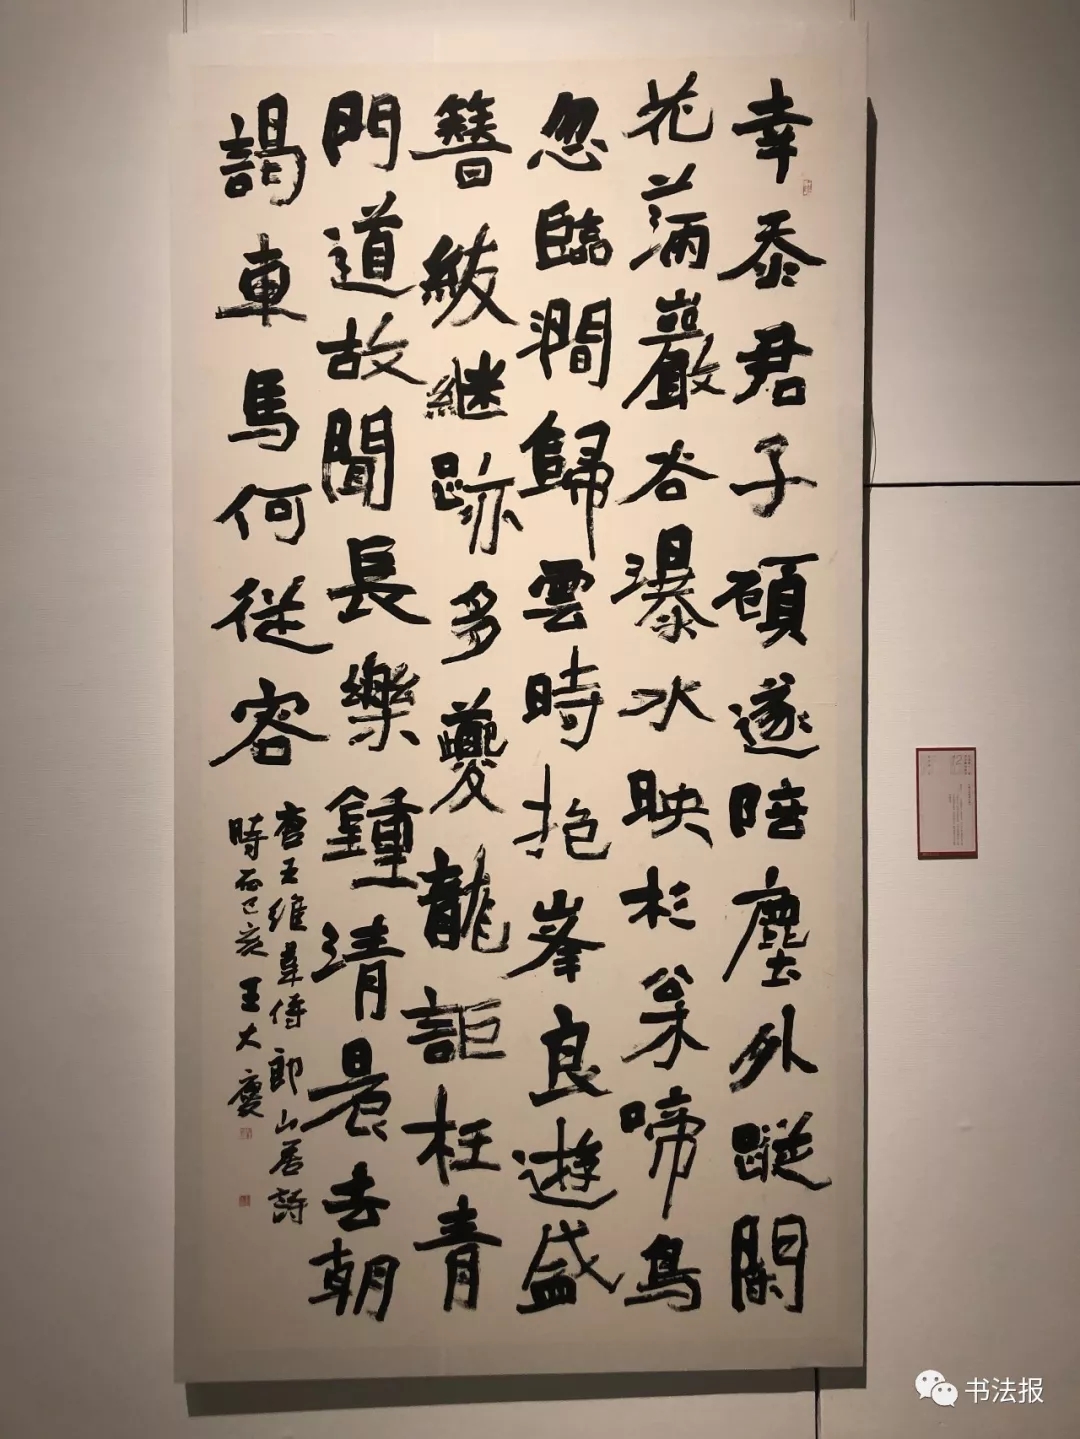 幸忝君子顧遂陪塵外蹤閑
花滿巖谷瀑水映杉枀啼鳥
忽臨澗歸雲時抱峯良遊盛
簪紱継跡多夔龍詎枉青
門道故聞長樂鍾清晨去朝
謁車馬何從容
唐王維韋侍郎山居詩
時在己亥王大慶
书法报